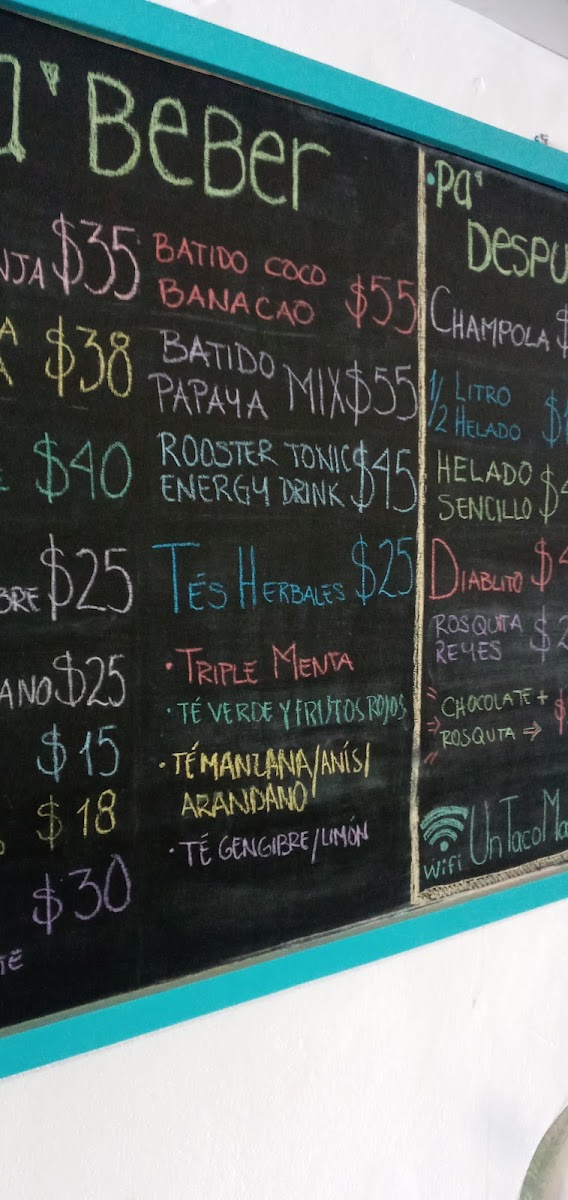 a' BEBER
NJA $35
A
A $38
E $40
BRE $25
ANO $25
$15
$18
$30
TE
BATIDO COCO
BANACAO $55
BATIDO
PAPAYA MIX $55
ROOSTER TONIC
ENERGY DRINK $45
TÉS HERBALES $25
• TRIPLE MENTA
• TÉ VERDE Y FRUTOS ROJOS
• TÉ MANZANA/ANÍS/
ARANDANO
• TÉ GENGIBRE/LIMÓN
• Pa'
DESPU
CHAMPOLA $
1/2 LITRO
HELADO $1
HELADO
SENCILLO $4
DIABLITO $4
ROSQUITA
REYES $2
CHOCOLATE +
ROSQUITA ⇒ $
wifi Un Taco Ma